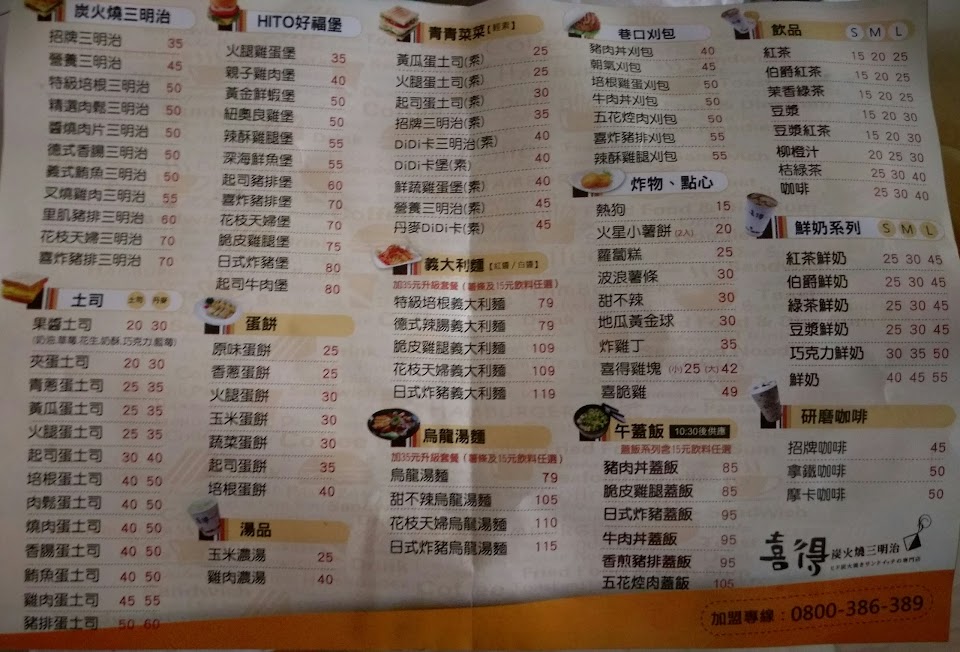 炭火燒三明治
招牌三明治 35
營養三明治 45
特級培根三明治 50
精選肉鬆三明治 50
醬燒肉片三明治 50
德式香腸三明治 50
義式鮪魚三明治 50
叉燒雞肉三明治 55
里肌豬排三明治 60
花枝天婦三明治 70
喜炸豬排三明治 70
土司 土司 丹麥
果醬土司 20 30
(奶油.草莓.花生.奶酥.巧克力.藍莓)
夾蛋土司 20 30
青蔥蛋土司 25 35
黃瓜蛋土司 25 35
火腿蛋土司 25 35
起司蛋土司 30 40
培根蛋土司 40 50
肉鬆蛋土司 40 50
燒肉蛋土司 40 50
香腸蛋土司 40 50
鮪魚蛋土司 40 50
雞肉蛋土司 45 55
豬排蛋土司 50 60
HITO好福堡
火腿雞蛋堡 35
親子雞肉堡 40
黃金鮮蝦堡 50
紐奧良雞堡 50
辣酥雞腿堡 55
深海鮮魚堡 55
起司豬排堡 60
喜炸豬排堡 70
花枝天婦堡 70
脆皮雞腿堡 75
日式炸豬堡 80
起司牛肉堡 80
蛋餅
原味蛋餅 25
香蔥蛋餅 25
火腿蛋餅 30
玉米蛋餅 30
蔬菜蛋餅 30
起司蛋餅 35
培根蛋餅 40
湯品
玉米濃湯 25
雞肉濃湯 40
青青菜菜【輕素】
黃瓜蛋土司(素) 25
火腿蛋土司(素) 25
起司蛋土司(素) 30
招牌三明治(素) 35
DiDi卡三明治(素) 40
DiDi卡堡(素) 40
鮮蔬雞蛋堡(素) 40
營養三明治(素) 45
丹麥DiDi卡(素) 45
義大利麵【紅醬/白醬】
加35元升級套餐(薯條及15元飲料任選)
特級培根義大利麵 79
德式辣腸義大利麵 79
脆皮雞腿義大利麵 109
花枝天婦義大利麵 109
日式炸豬義大利麵 119
烏龍湯麵
加35元升級套餐(薯條及15元飲料任選)
烏龍湯麵 79
甜不辣烏龍湯麵 105
花枝天婦烏龍湯麵 110
日式炸豬烏龍湯麵 115
巷口刈包
豬肉丼刈包 40
朝氣刈包 45
培根雞蛋刈包 50
牛肉丼刈包 50
五花焢肉刈包 50
喜炸豬排刈包 55
辣酥雞腿刈包 55
炸物、點心
熱狗 15
火星小薯餅(2入) 20
蘿蔔糕 25
波浪薯條 30
甜不辣 30
地瓜黃金球 30
炸雞丁 35
喜得雞塊 (小)25 (大)42
喜脆雞 49
午蓋飯 10:30後供應
蓋飯系列含15元飲料任選
豬肉丼蓋飯 85
脆皮雞腿蓋飯 85
日式炸豬蓋飯 95
牛肉丼蓋飯 95
香煎豬排蓋飯 95
五花焢肉蓋飯 105
飲品 S M L
紅茶 15 20 25
伯爵紅茶 15 20 25
茉香綠茶 15 20 25
豆漿 15 20 30
豆漿紅茶 15 20 30
柳橙汁 20 25 30
桔綠茶 25 30 40
咖啡 25 30 40
鮮奶系列 S M L
紅茶鮮奶 25 30 45
伯爵鮮奶 25 30 45
綠茶鮮奶 25 30 45
豆漿鮮奶 25 30 45
巧克力鮮奶 30 35 50
鮮奶 40 45 55
研磨咖啡
招牌咖啡 45
拿鐵咖啡 50
摩卡咖啡 50
喜得 炭火燒三明治
加盟專線：0800-386-389